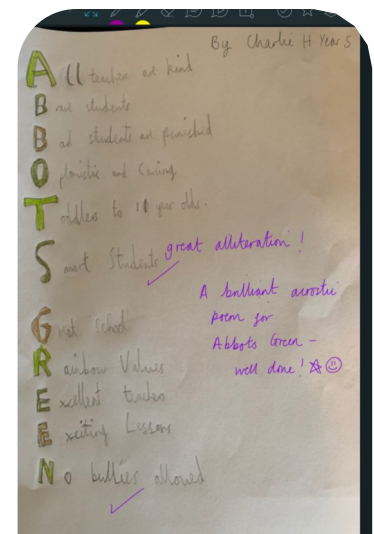 By Charlie H Year 5
All teachers are kind
Brave students
Bad students are punished
Optimistic and Caring
Toddlers to 11 year olds.
Smart Students
great alliteration!
A brilliant acrostic
poem for
Abbots Green –
well done!
Great School
Rainbow Values
Excellent teachers
Exciting Lessons
No bullies allowed